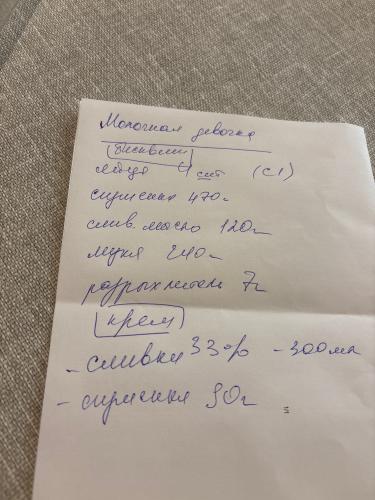 Молочная девочка
бисквит
яйца 4 шт (С1)
сгущенка 470г
слив. масло 120г
мука 240г
разрыхлитель 7г
крем
- сливки 33% - 300мл
- сгущенка 90г